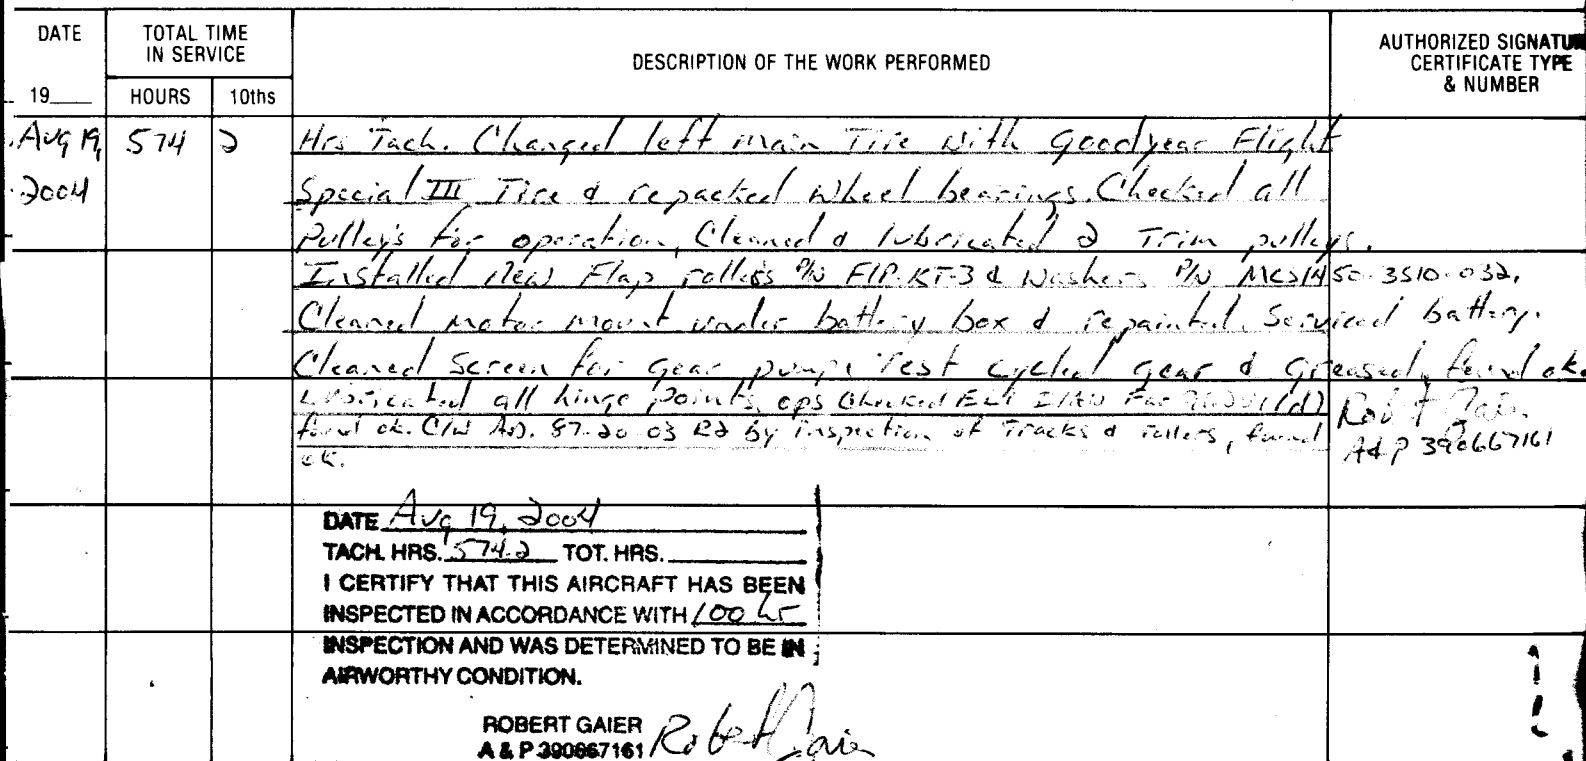 DATE TOTAL TIME IN SERVICE DESCRIPTION OF THE WORK PERFORMED AUTHORIZED SIGNATUR CERTIFICATE TYPE & NUMBER
19 HOURS 10ths
Aug 19, 574 2 Hrs Tach. Changed left main Tire with Goodyear Flight
2004 Special III Tire & repacked wheel bearings. Checked all
Pulley's for operation, Cleaned & lubricated 2 Trim pulleys.
Installed new Flap rollers P/N FIP-KT-3 & Washers P/N 50-3510-032.
Cleaned motor mount under battery box & repainted. Serviced battery.
Cleaned screen for gear pump. Test cycled gear & greased, found ok.
Lubricated all hinge points, ops checked ELT (d)
found ok. C/W AD. 87-20-03 R2 by inspection of Tracks & rollers, found
ok.
Robert Gaier
A&P 390667161
DATE Aug 19, 2004
TACH. HRS. 574.2 TOT. HRS.
I CERTIFY THAT THIS AIRCRAFT HAS BEEN
INSPECTED IN ACCORDANCE WITH 100 hr
INSPECTION AND WAS DETERMINED TO BE IN
AIRWORTHY CONDITION.
ROBERT GAIER Robert Gaier
A & P 390667161